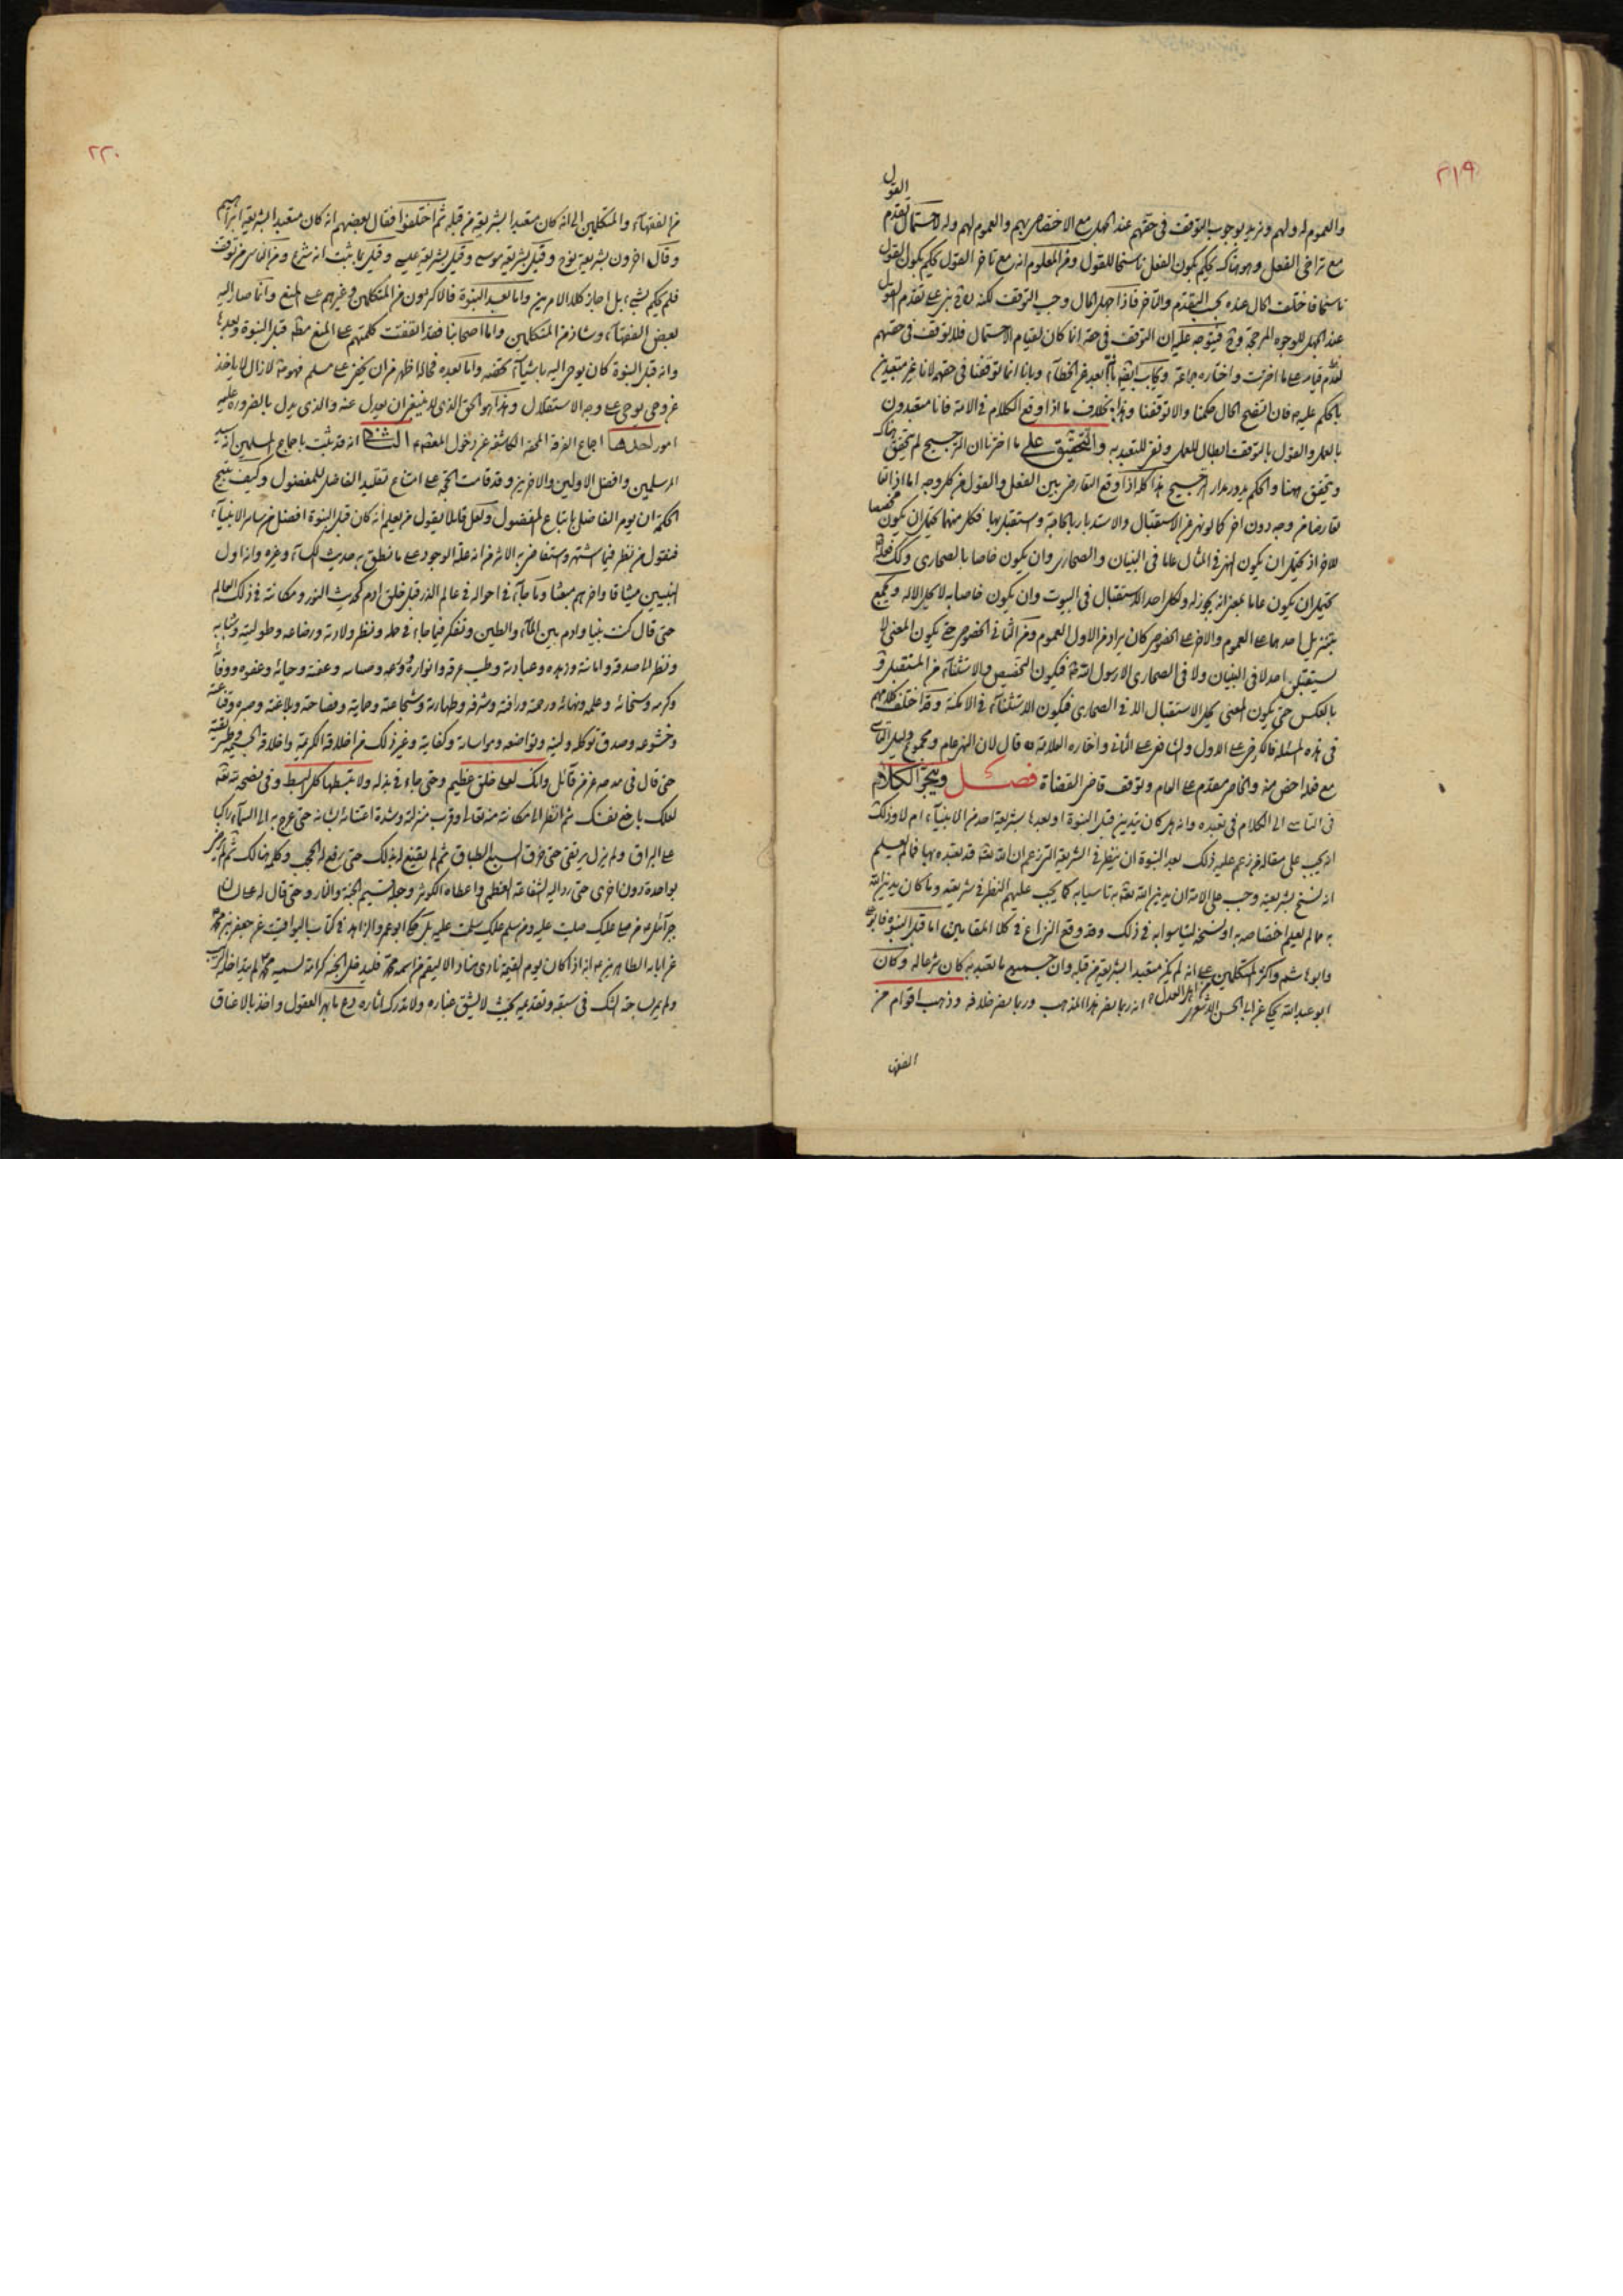 ٢١٩
القول
والعموم له ولهم ونريد بوجوب التوقف في حقهم عند الجهل مع الاختصاص بهم والعموم لهم وله لاحتمال تقدم
مع تراخي الفعل وهو هناك يحكم بكون الفعل ناسخا للقول ومن المعلوم انه مع تاخر القول يحكم بكون القول
ناسخا فاختلف الحال عنده بحسب التقدم والتاخر فاذا جهل الحال وجب التوقف لكنه
عند الجهل للوجوه المرجحة فيتوجه عليه ان التوقف في حقه انما كان لقيام الاحتمال فلا توقف في حقهم
لعدم قيامه على ما اخترت واختاره جماعة وبانا انما توقفنا في حقهم لانا غير متعبدين
بالحكم عليه فان اتضح الحال حكمنا والا توقفنا وهذا بخلاف ما اذا وقع الكلام في الامة فانا متعبدون
بالعمل والقول بالتوقف ابطال للعمل ونفي للتعبد به والتحقيق على ما اخترنا ان الترجيح لم يتحقق هناك
ويتحقق ههنا والحكم يدور مدار الترجيح هذا كله اذا وقع التعارض بين الفعل والقول من كل وجه اما اذا
تعارضا من وجه دون اخر كما لو نهى عن الاستقبال والاستدبار بالحاجة واستقبل بها فكل منهما يحتمل ان يكون مخصصا
للاخر اذ يحتمل ان يكون النهي في المثال عاما في البنيان والصحاري وان يكون خاصا بالصحاري وكك فعله
يحتمل ان يكون عاما بمعنى انه يجوز له ولكل احد الاستقبال في البيوت وان يكون خاصا به لا يحل الا له ويجمع
بتنزيل احدهما على العموم والاخر على الخصوص كان يراد من الاول العموم ومن الثاني الخصوص حتى يكون المعنى لا
يستقبل احد لا في البنيان ولا في الصحاري الا رسول الله فيكون التخصيص والاستثناء من المستقبل
بالعكس حتى يكون المعنى يحل الاستقبال الا في الصحاري فيكون الاستثناء في الامكنة وقد اختلف كلامهم
في هذه المسئلة فالكرخي على الاول والشافعي على الثاني واختاره العلامة ره قال لان النهي عام ومجموع دليل التاسي
مع فعله اخص منه والخاص مقدم على العام وتوقف قاضي القضاة فصل وينجر الكلام
في التاسي الى الكلام في تعبده وانه هل كان يتدين قبل النبوة او بعدها بشريعة احد من الانبياء ام لا وذلك
انه يجب على مقالة من زعم عليه ذلك بعد النبوة ان ينظر في الشريعة التي زعم ان الله تعه قد تعبده بها فما لم يعلم
انه نسخ بشريعته وجب على الامة ان يدين الله تعه به تاسيا به كما يجب عليهم النظر في شريعته وما كان يدين الله
به ما لم يعلم اختصاصه به او نسخه ليتاسوا به في ذلك وقد وقع النزاع في كلا المقامين اما قبل النبوة فابو علي
وابو هاشم واكثر المتكلمين من اهل العدل على انه لم يكن متعبدا بشريعة من قبله وان جميع ما تعبد به كان شرعا له وكان
ابو عبد الله يحكي عن ابي الحسن الاشعري انه ربما نصر هذا المذهب وربما نصر خلافه وذهب اقوام من
الفقها
٢٢٠
من الفقهاء والمتكلمين الى انه كان متعبدا بشريعة من قبله ثم اختلفوا فقال بعضهم انه كان متعبدا بشريعة ابراهيم
وقال اخرون بشريعة نوح وقيل بشريعة موسى وقيل بشريعة عيسى وقيل بما ثبت انه شرع ومن الناس من توقف
فلم يحكم بشيء بل اجاز كلا الامرين واما بعد النبوة فالاكثرون من المتكلمين وغيرهم على المنع وانما صار اليه
بعض الفقهاء وشاذ من المتكلمين واما اصحابنا فقد اتفقت كلمتهم على المنع مطه قبل النبوة وبعدها
وانه قبل النبوة كان يوحى اليه باشياء تخصه واما بعده فحاله اظهر من ان يخفى على مسلم فهو مذ لا زال لا ياخذ
عن وحي يوحى على وجه الاستقلال وهذا هو الحق الذي لا ينبغي ان يعدل عنه والذي يدل بالضرورة عليه
امور احدها اجماع الفرقة المحقة الكاشف عن دخول المعصوم الثاني انه قد ثبت باجماع المسلمين انه سيد
المرسلين وافضل الاولين والاخرين وقد قامت الحجة على امتناع تقليد الفاضل للمفضول وكيف يتيح
الحكمة ان يؤمر الفاضل باتباع المفضول ولعل قائلا يقول من يعلم انه كان قبل النبوة افضل من سائر الانبياء
فنقول من نظر فيما اشتهر واستفاض به الاثر من انه علة الوجود على ما نطق به حديث الكساء وغيره وانه اول
النبيين ميثاقا واخرهم مبعثا وما جاء في احواله في عالم الذر قبل خلق ادم كحديث النور ومكانته في ذلك العالم
حتى قال كنت نبيا وادم بين الماء والطين وتفكر فيما جاء في حمله ونظر ولادته ورضاعه وطفوليته وشبابه
ونظر الى صدقه وامانته وزهده وعبادته وطيب عرقه وانواره وعفته وحيائه وعفوه ووفائه
وكرمه وسخائه وعلمه ونهائه ورحمته ورافته وشرفه وطهارته وشجاعته وحمايته وفصاحته وبلاغته وصبره وقناعته
وخشوعه وصدق توكله ولينه وتواضعه ومواساته وكفايته وغير ذلك من اخلاقه الكريمة
حتى قال في مدحه عز من قائل وانك لعلى خلق عظيم وحتى جاء في بذله ولا تبسطها كل البسط وفي نصحيته
لعلك باخع نفسك ثم انظر الى مكانته منه تعالى وقرب منزلته وشدة اعتنائه بشانه حتى عرج به الى السماء راكبا
على البراق ولم يزل يرتقي حتى خرق السبع الطباق ثم لم يقنع له بذلك حتى رفع له الحجب وكلمه هنالك ثم لم يرض
بواحدة دون اخرى حتى رد اليه الشفاعة العظمى واعطاه الكوثر وجعله قسيم الجنة والنار وحتى قال له على لسان
جبرائيل من صلى عليك صليت عليه ومن سلم عليك سلمت عليه بل حكى ابو عمر الزاهد في كتاب اليواقيت عن جعفر بن محمد
عن ابائه الطاهرين انه اذا كان يوم القيمة نادى مناد الا ليقم من اسمه محمد فليدخل الجنة كرامة لسميه محمد
ولم يرب شك في سبقه وتقدمه بحيث لا يشق غباره ولا تدرك اثاره وع ما بهر العقول واخذ بالاعناق